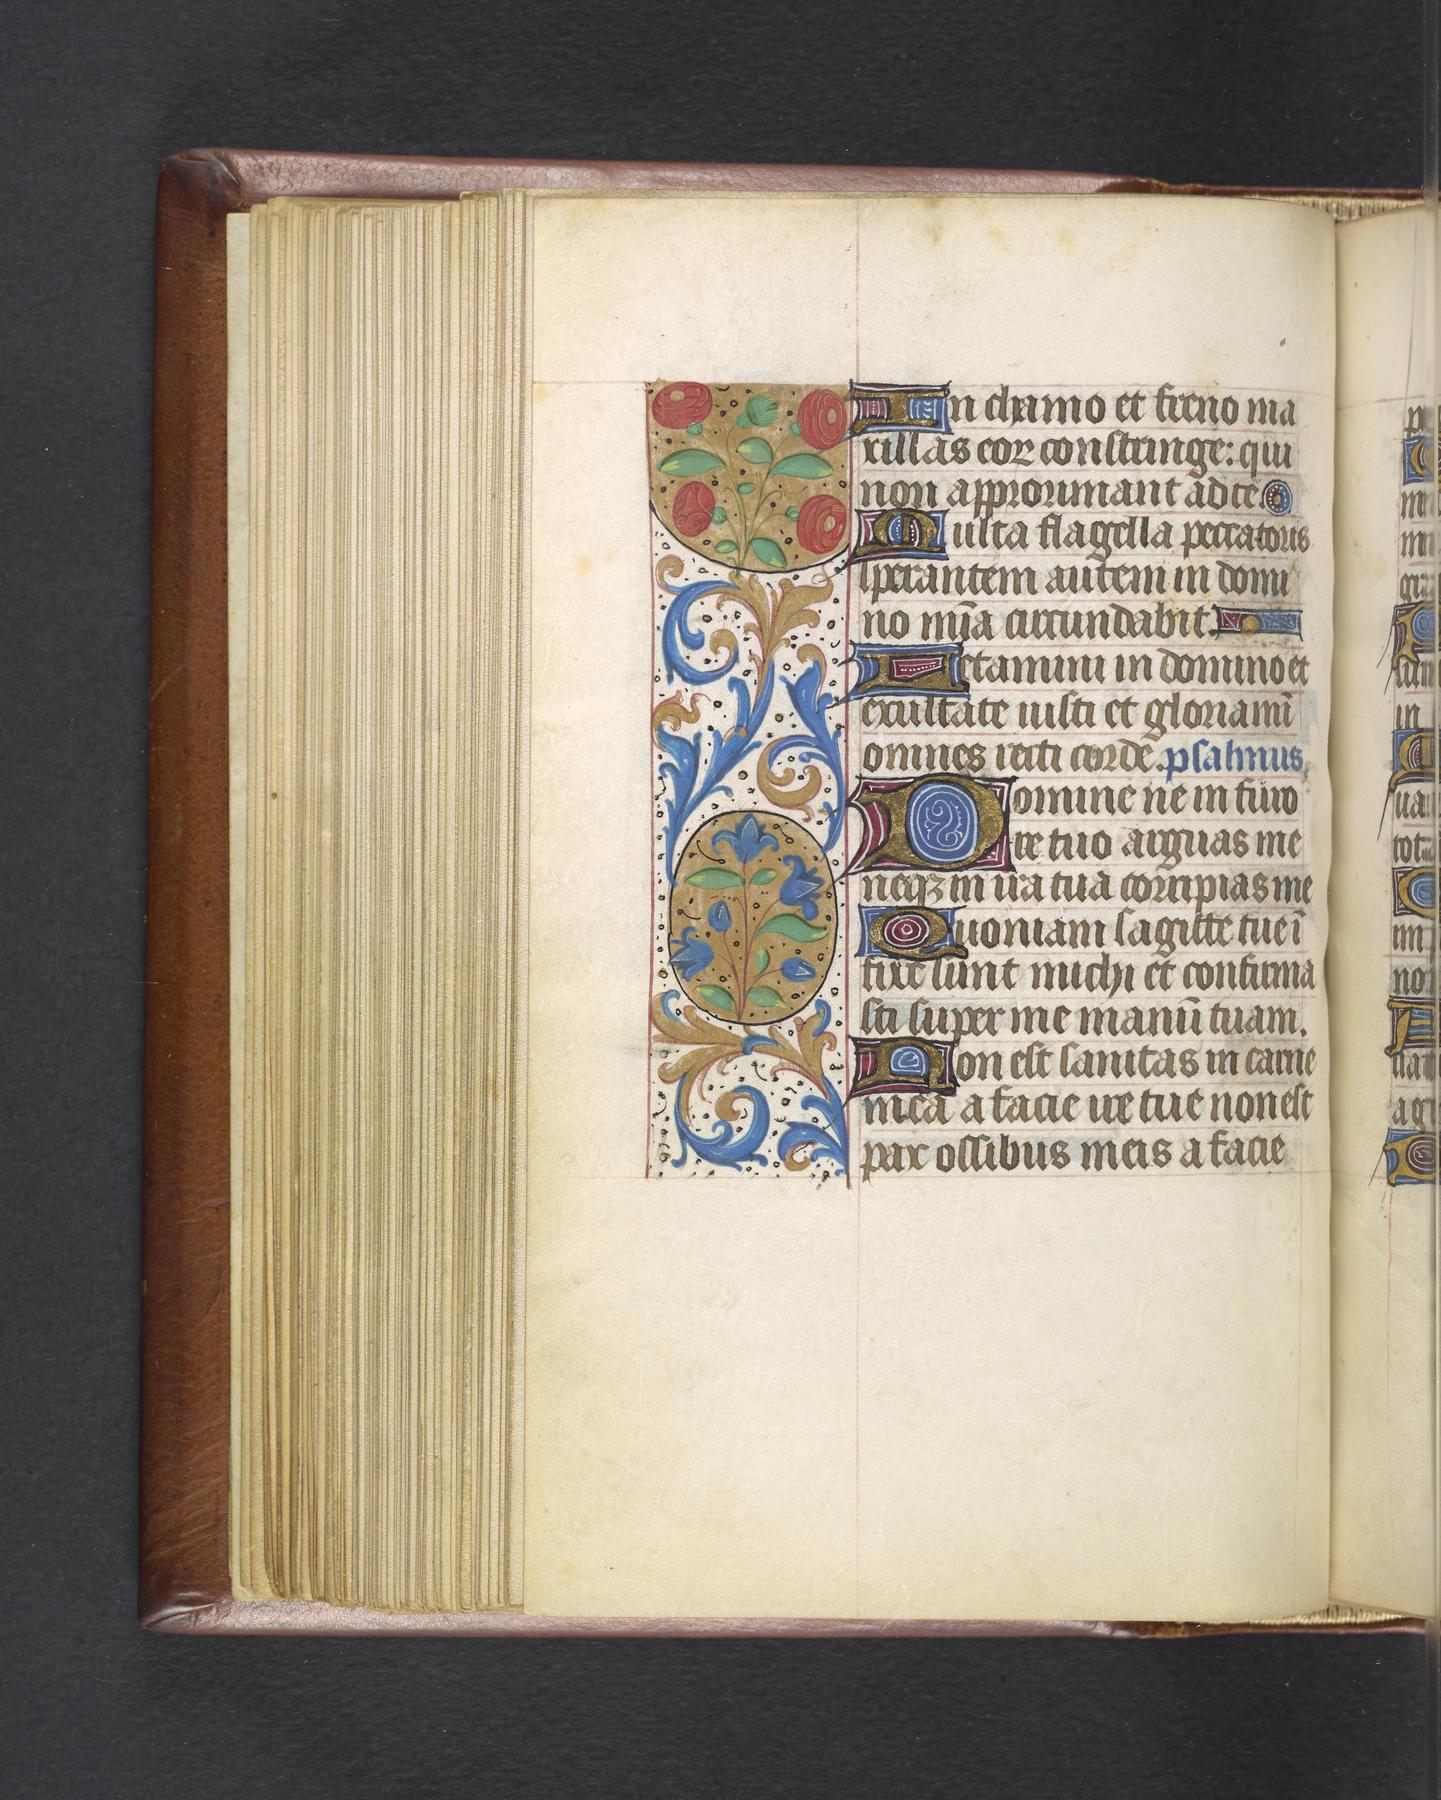 In chamo et freno ma
xillas eoꝝ constringe: qui
non approximant ad te
Multa flagella peccatoris
sperantem autem in domi
no mīa circundabit.
Letamini in domino et
exultate iusti et gloriamī
omnes recti corde. psalmus
Domine ne in furo
re tuo arguas me
neqꝫ in ira tua corripias me
Quoniam sagitte tue ī
fixe sunt michi et confirma
sti super me manū tuam.
Non est sanitas in carne
mea a facie ire tue non est
pax ossibus meis a facie